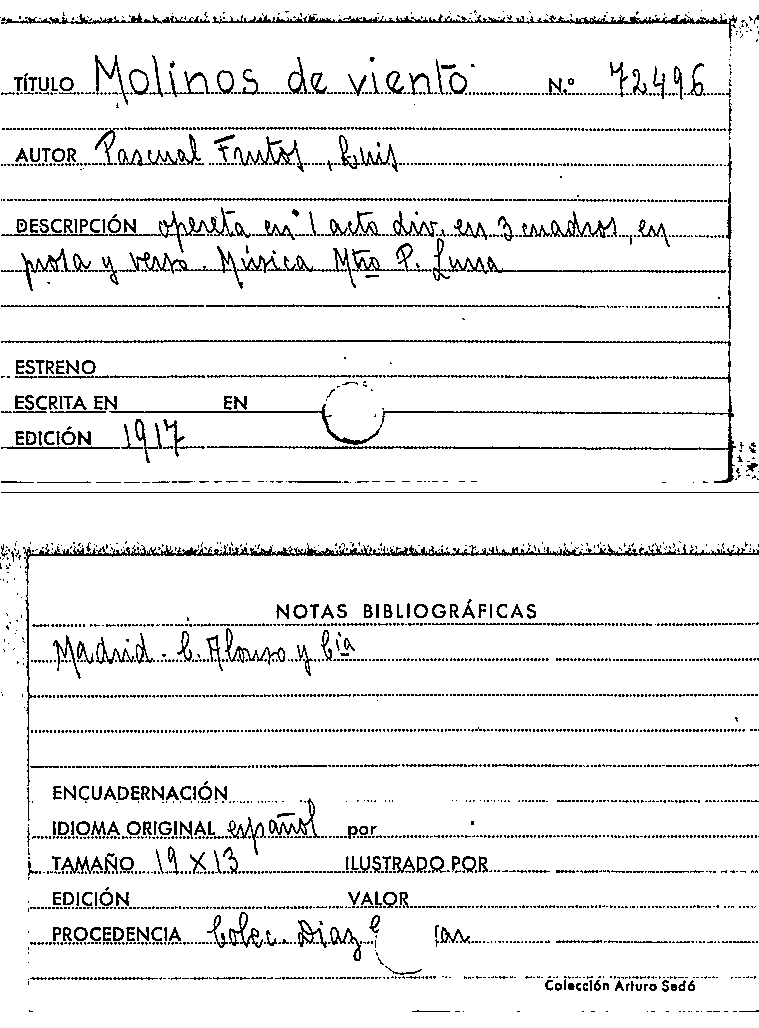 TÍTULO Molinos de viento N.º 72496
AUTOR Pascual Frutos, Luis
DESCRIPCIÓN opereta en 1 acto div. en 3 cuadros, en
prosa y verso. Música Mtro P. Luna
ESTRENO
ESCRITA EN EN
EDICIÓN 1917
NOTAS BIBLIOGRÁFICAS
Madrid. C. Alonso y Cía
ENCUADERNACIÓN
IDIOMA ORIGINAL español por
TAMAÑO 19 X 13 ILUSTRADO POR
EDICIÓN VALOR
PROCEDENCIA Colec. Díaz
Colección Arturo Sedó